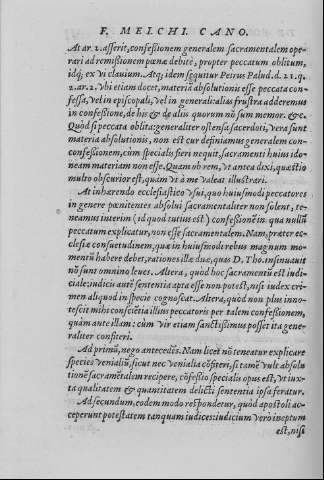 F. MELCHI. CANO.
At ar. 2. asserit, confeßionem generalem sacramentalem ope-
rari ad remißionem pœnæ debitæ, propter peccatum oblitum,
idq; ex vi clauium. Atq; idem sequitur Petrus Palud. d. 21. q.
2. ar. 2. vbi etiam docet, materiã absolutionis esse peccata con-
fessa, vel in speciali, vel in generali: alias frustra adderemus
in confeßione, de his & de aliis quorum nõ sum memor. &c.
Quòd si peccata oblita: generaliter ostensa sacerdoti, vera sunt
materia absolutionis, non est cur definiamus generalem con-
confeßionem, cùm specialis fieri nequit, sacramenti huius ido-
neam materiam non esse. Quam ob rem, vt antea dixi, quæstio
multo obscurior est, quàm vt à me valeat illustrari.
At inhærendo ecclesiastico vsui, quo huiusmodi peccatores
in genere pœnitentes absolui sacramentaliter non solent, te-
neamus interim (id quod tutius est) confeßionẽ in qua nullũ
peccatum explicatur, non esse sacramentalem. Nam, præter ec-
clesiæ consuetudinem, quæ in huiusmodi rebus magnum mo-
mentũ habere debet, rationes illæ duæ, quas D. Tho. insinuauit
nõ sunt omnino leues. Altera, quòd hoc sacramentũ est iudi-
ciale: iudicii autẽ sententia apta esse non potest, nisi iudex cri-
men aliquod in specie cognoscat. Altera, quòd non plus inno-
tescit mihi cõsciẽtia illius peccatoris per talem confeßionem,
quàm ante illam: cùm vir etiam sanctißimus posset ita gene-
raliter confiteri.
Ad primũ, nego antecedẽs. Nam licet nõ teneatur explicare
species venialiũ, sicut nec venialia cõfiteri, si tamẽ vult absolu
tionẽ sacramẽtalem recipere, cõfeßio specialis opus est, vt iux-
ta qualitatem & quantitatem delicti sententia ipsa feratur.
Ad secundum, eodem modo respondetur, quòd apostoli ac-
ceperunt potestatem tanquam iudices: iudicium verò ineptum
est, nisi